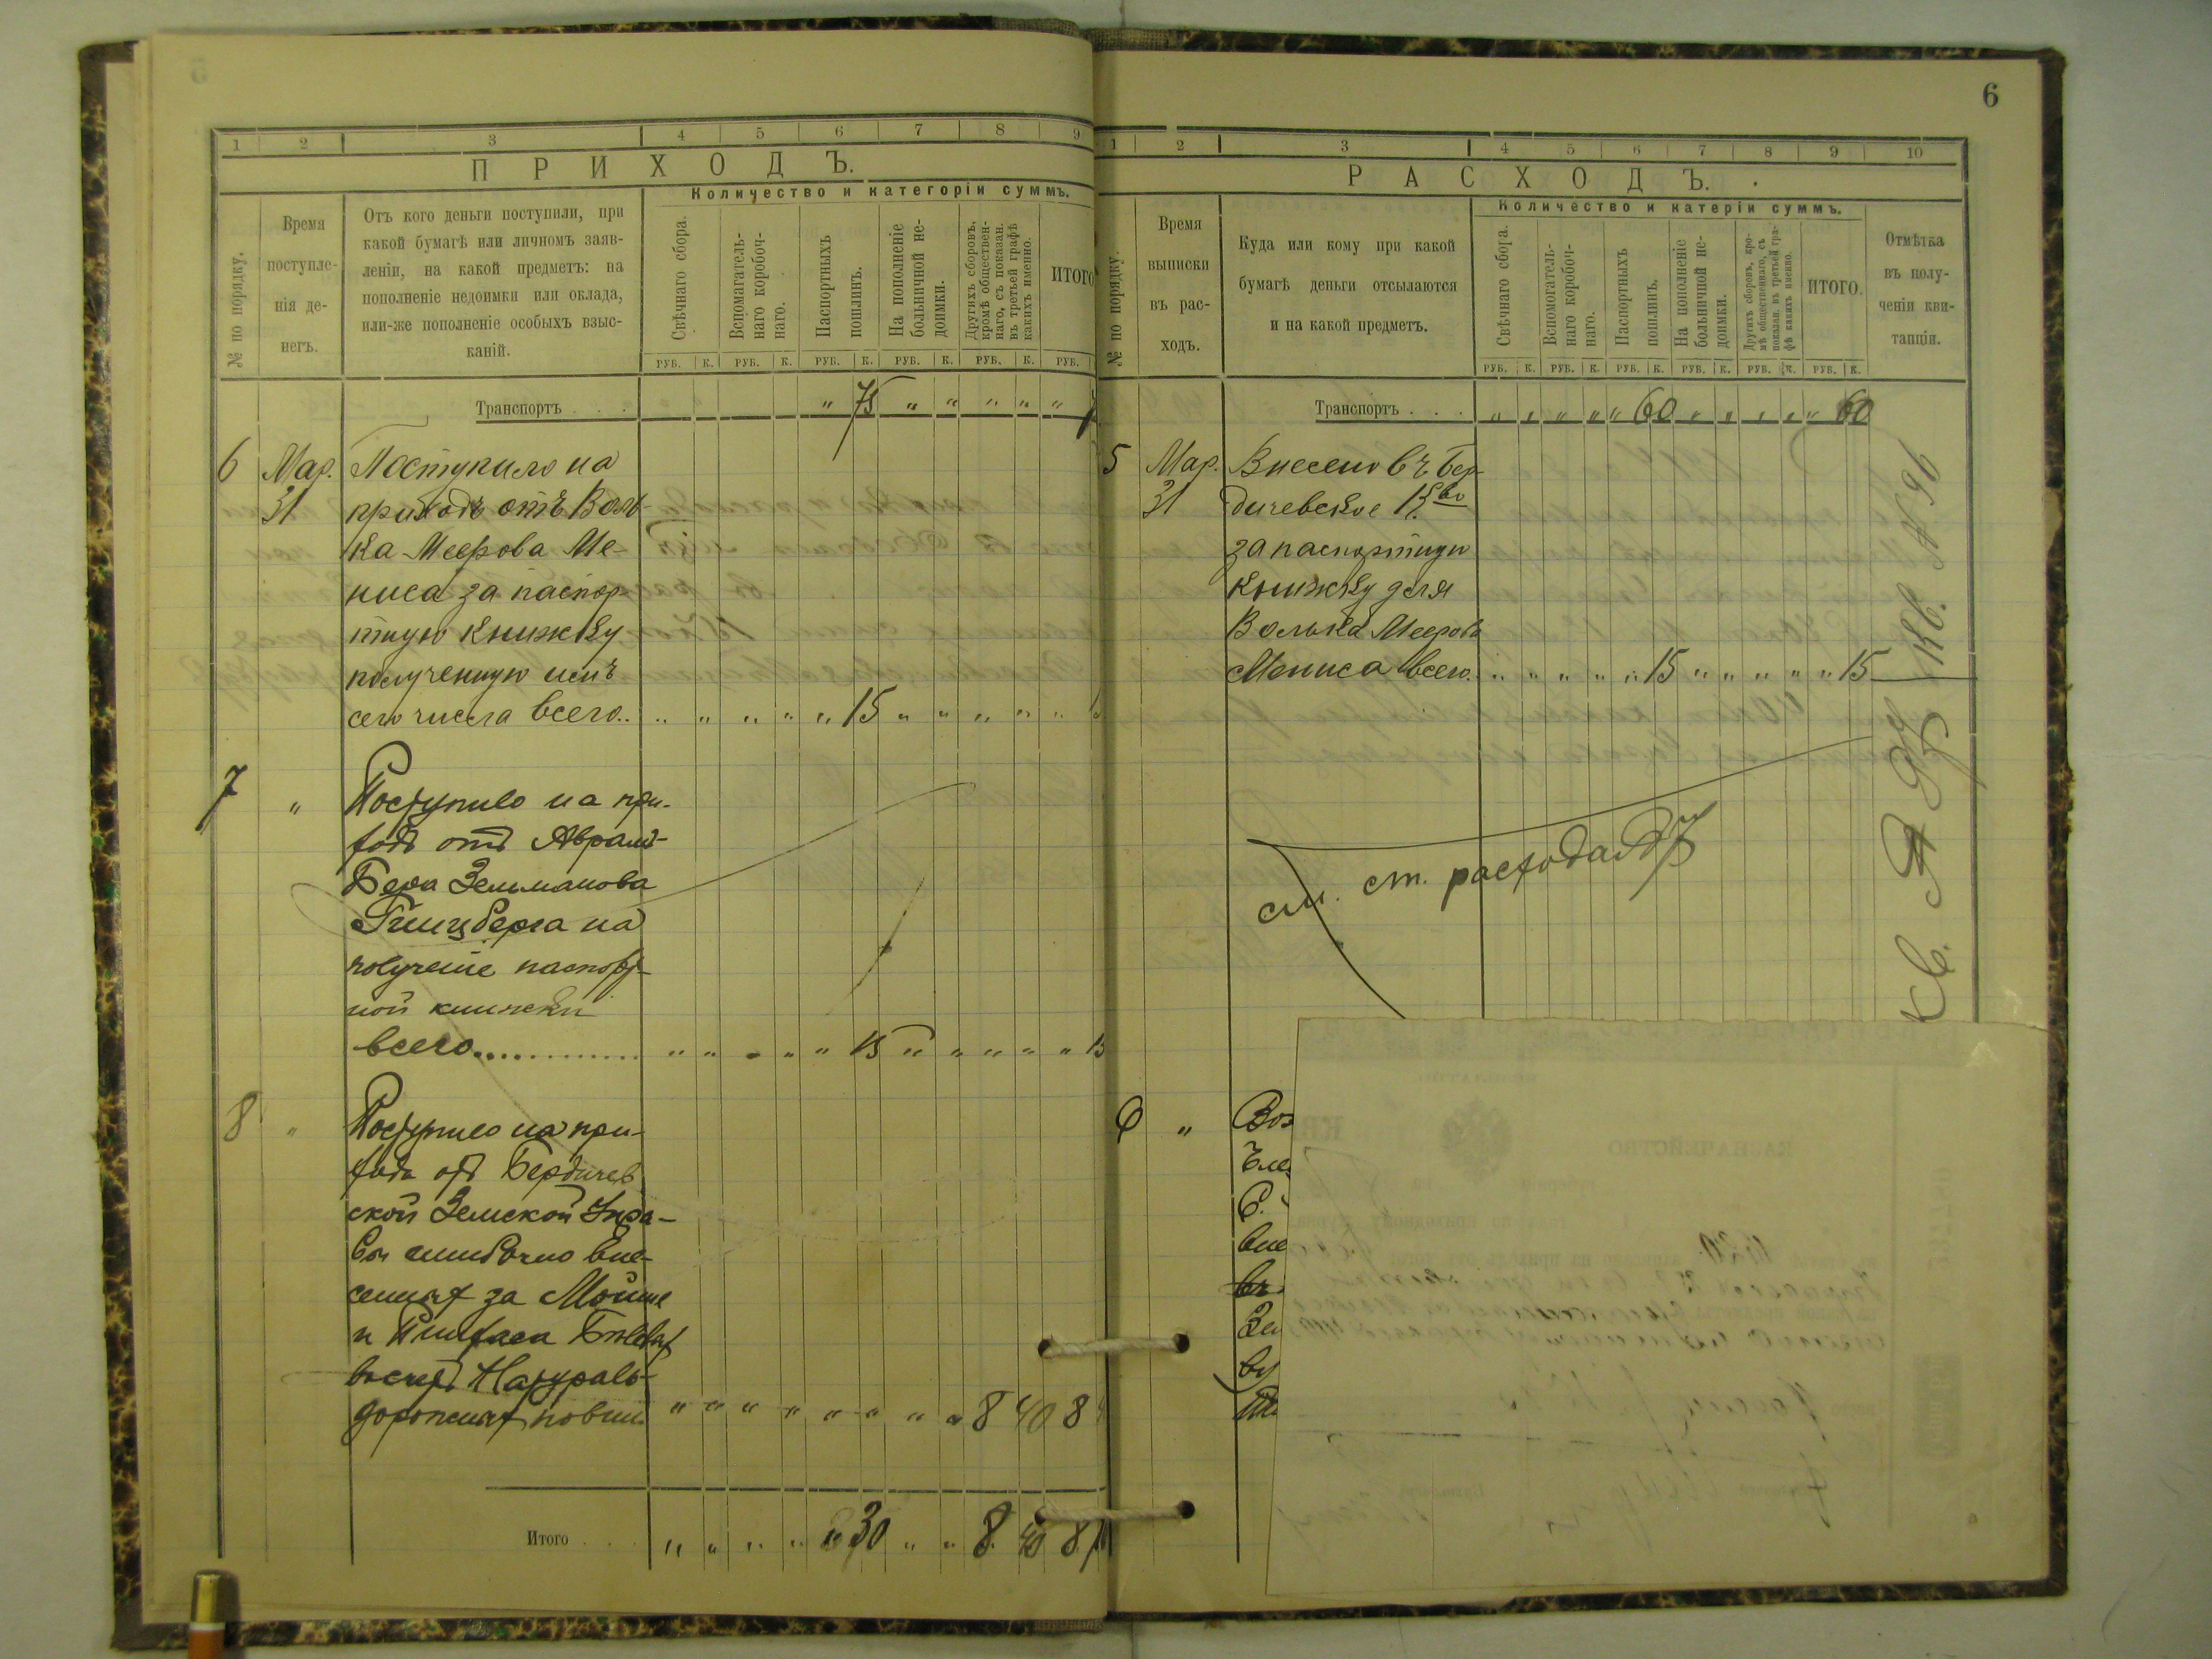 1 2 3 4 5 6 7 8 9
ПРИХОДЪ.
№ по порядку.
Время
поступле-
нія де-
негъ.
Отъ кого деньги поступили, при
какой бумагѣ или личномъ заяв-
леніи, на какой предметъ: на
пополненіе недоимки или оклада,
или-же пополненіе особыхъ взыс-
каній.
Количество и категоріи суммъ.
Свѣчнаго сбора.
Вспомагатель-
наго коробоч-
наго.
Паспортныхъ
пошлинъ.
На пополненіе
больничной не-
доимки.
Другихъ сборовъ,
кромѣ обществен-
наго, съ показан.
въ третьей графѣ
какихъ именно.
ИТОГО
РУБ. К. РУБ. К. РУБ. К. РУБ. К. РУБ. К. РУБ.
Транспортъ . . . " 75 " " " " "
6 Мар. Поступило на
31 приходъ отъ Воль-
ка Меерова Ме-
ниса за паспор-
тную книжку
полученную имъ
сего числа всего.. " " " " " 15 " " " " "
7 " Поступило на при-
ходъ отъ Аврамъ-
Бера Зельманова
Гинцберга на
полученіе паспорт-
ной книжки
всего............. " " " " " 15 " " " " " 15
8 " Поступило на при-
ходъ отъ Бердичев
ской Земской Упра-
вы ошибочно вне-
сенныхъ за Мойше
и
дорожныхъ повин. " " " " " " " " 8 40 8
Итого . . . " " " " " 30 " " 8 40 8
6
1 2 3 4 5 6 7 8 9 10
РАСХОДЪ.
№ по порядку.
Время
выписки
въ рас-
ходъ.
Куда или кому при какой
бумагѣ деньги отсылаются
и на какой предметъ.
Количество и катеріи суммъ.
Свѣчнаго сбора.
Вспомогатель-
наго коробоч-
наго.
Паспортныхъ
пошлинъ.
На пополненіе
больничной не-
доимки.
Другихъ сборовъ, кро-
мѣ общественнаго, съ
показан. въ третьей гра-
фѣ какихъ именно.
ИТОГО.
Отмѣтка
въ полу-
ченіи кви-
танціи.
РУБ. К. РУБ. К. РУБ. К. РУБ. К. РУБ. К. РУБ. К.
Транспортъ . . . " " " " " 60 " " " " " 60
5 Мар. Внесено въ Бер-
31 дичевское К-во
за паспортную
книжку для
Волька Меерова
Мениса всего. " " " " " 15 " " " " " 15
Кв. № 96
см. ст. расхода
Кв. №
6 " Воз
вне
въ
Зе